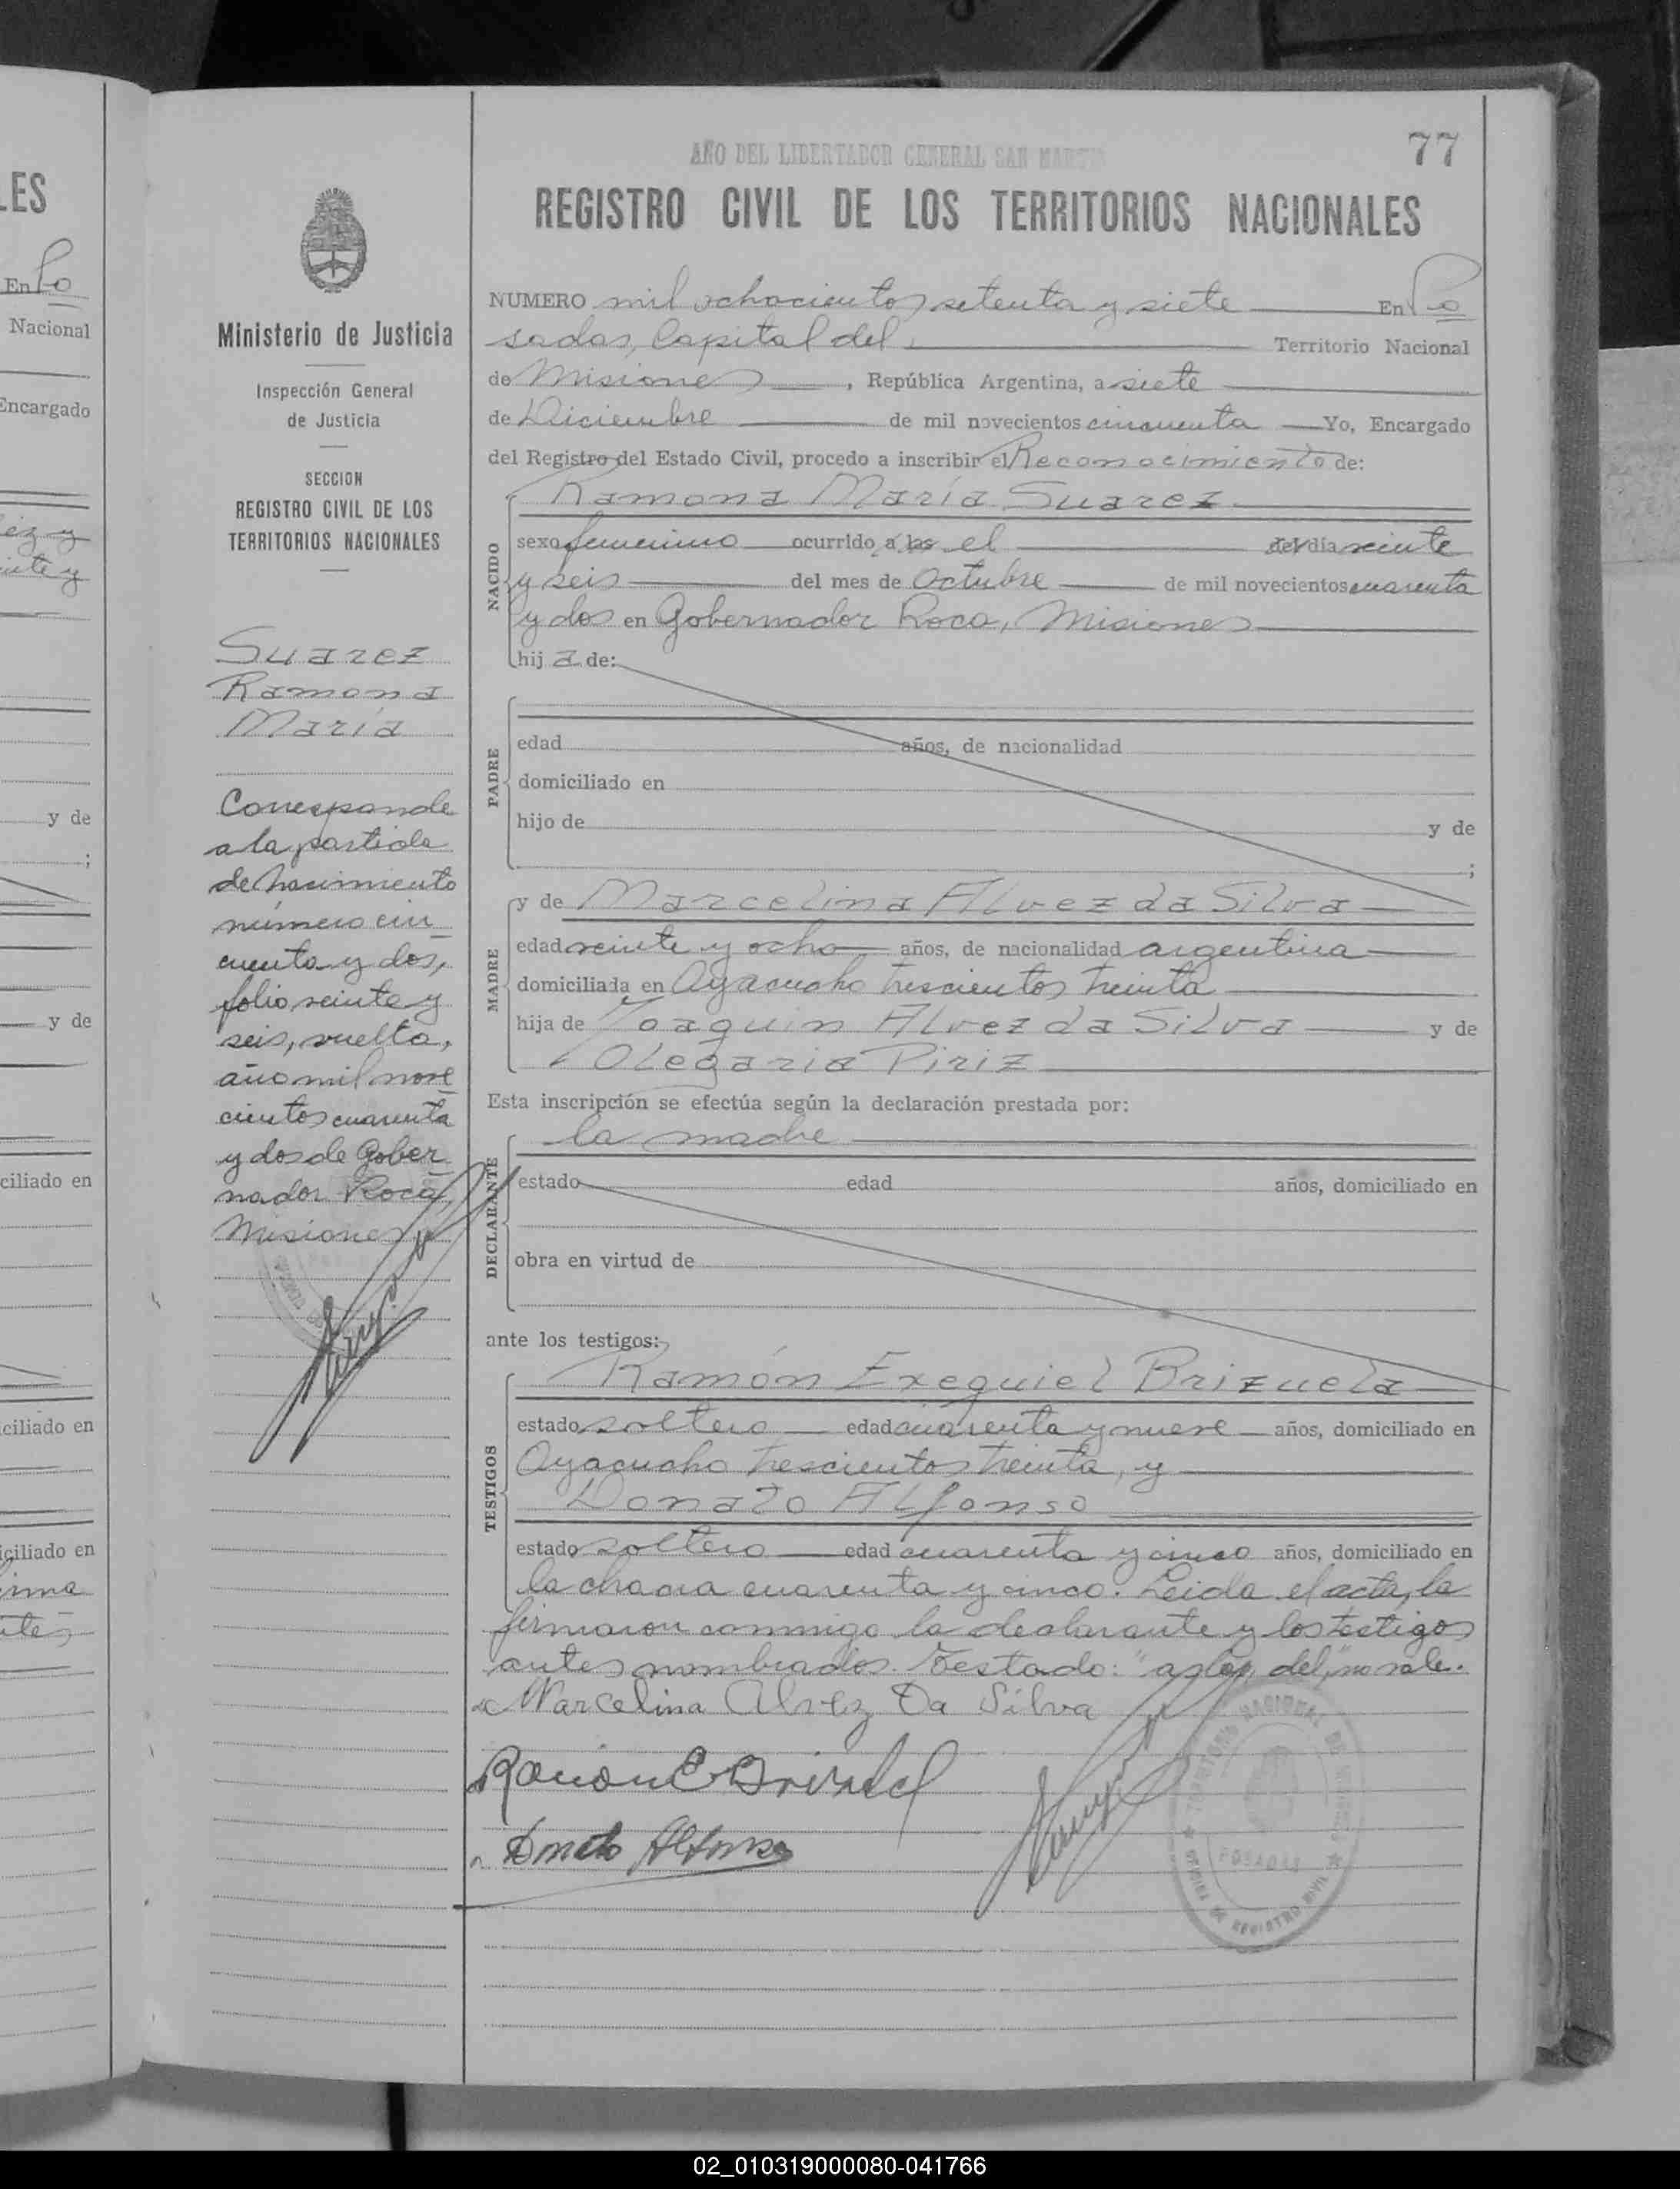 LES
En Po
Nacional
Encargado
y de
;
y de
ciliado en
ciliado en
ciliado en
Ministerio de Justicia
Inspección General
de Justicia
SECCION
REGISTRO CIVIL DE LOS
TERRITORIOS NACIONALES
Suarez
Ramona
María
Corresponde
a la partida
de nacimiento
número cin
cuenta y dos,
folio veinte y
seis, vuelta,
año mil nove
cientos cuarenta
y dos de Gober
nador Roca,
Misiones
77
AÑO DEL LIBERTADOR GENERAL SAN MARTIN
REGISTRO CIVIL DE LOS TERRITORIOS NACIONALES
NUMERO mil ochocientos setenta y siete En Po
sadas, Capital del Territorio Nacional
de Misiones, República Argentina, a siete
de Diciembre de mil novecientos cincuenta Yo, Encargado
del Registro del Estado Civil, procedo a inscribir el Reconocimiento de:
Ramona María Suarez
NACIDO
sexo femenino ocurrido a las el del día veinte
y seis del mes de Octubre de mil novecientos cuarenta
y dos en Gobernador Roca, Misiones
hija de:
PADRE
edad años, de nacionalidad
domiciliado en
hijo de y de
;
MADRE
y de Marcelina Alvez da Silva
edad veinte y ocho años, de nacionalidad argentina
domiciliada en Ayacucho trescientos treinta
hija de Joaquin Alvez da Silva y de
Olegaria Piriz
Esta inscripción se efectúa según la declaración prestada por:
DECLARANTE
la madre
estado edad años, domiciliado en
obra en virtud de
ante los testigos:
TESTIGOS
Ramón Exequiel Brizuela
estado soltero edad cuarenta y nueve años, domiciliado en
Ayacucho trescientos treinta, y
Donato Alfonso
estado soltero edad cuarenta y cinco años, domiciliado en
la chacra cuarenta y cinco. Leida el acta, la
firmaron conmigo la declarante y los testigos
antes nombrados. Testado: "a las, del", no vale.
Marcelina Alvez Da Silva
Ramón E Brizuela
Donato Alfonso
TERRITORIO NACIONAL DE MISIONES
POSADAS
OFICINA DE REGISTRO CIVIL
02_010319000080-041766